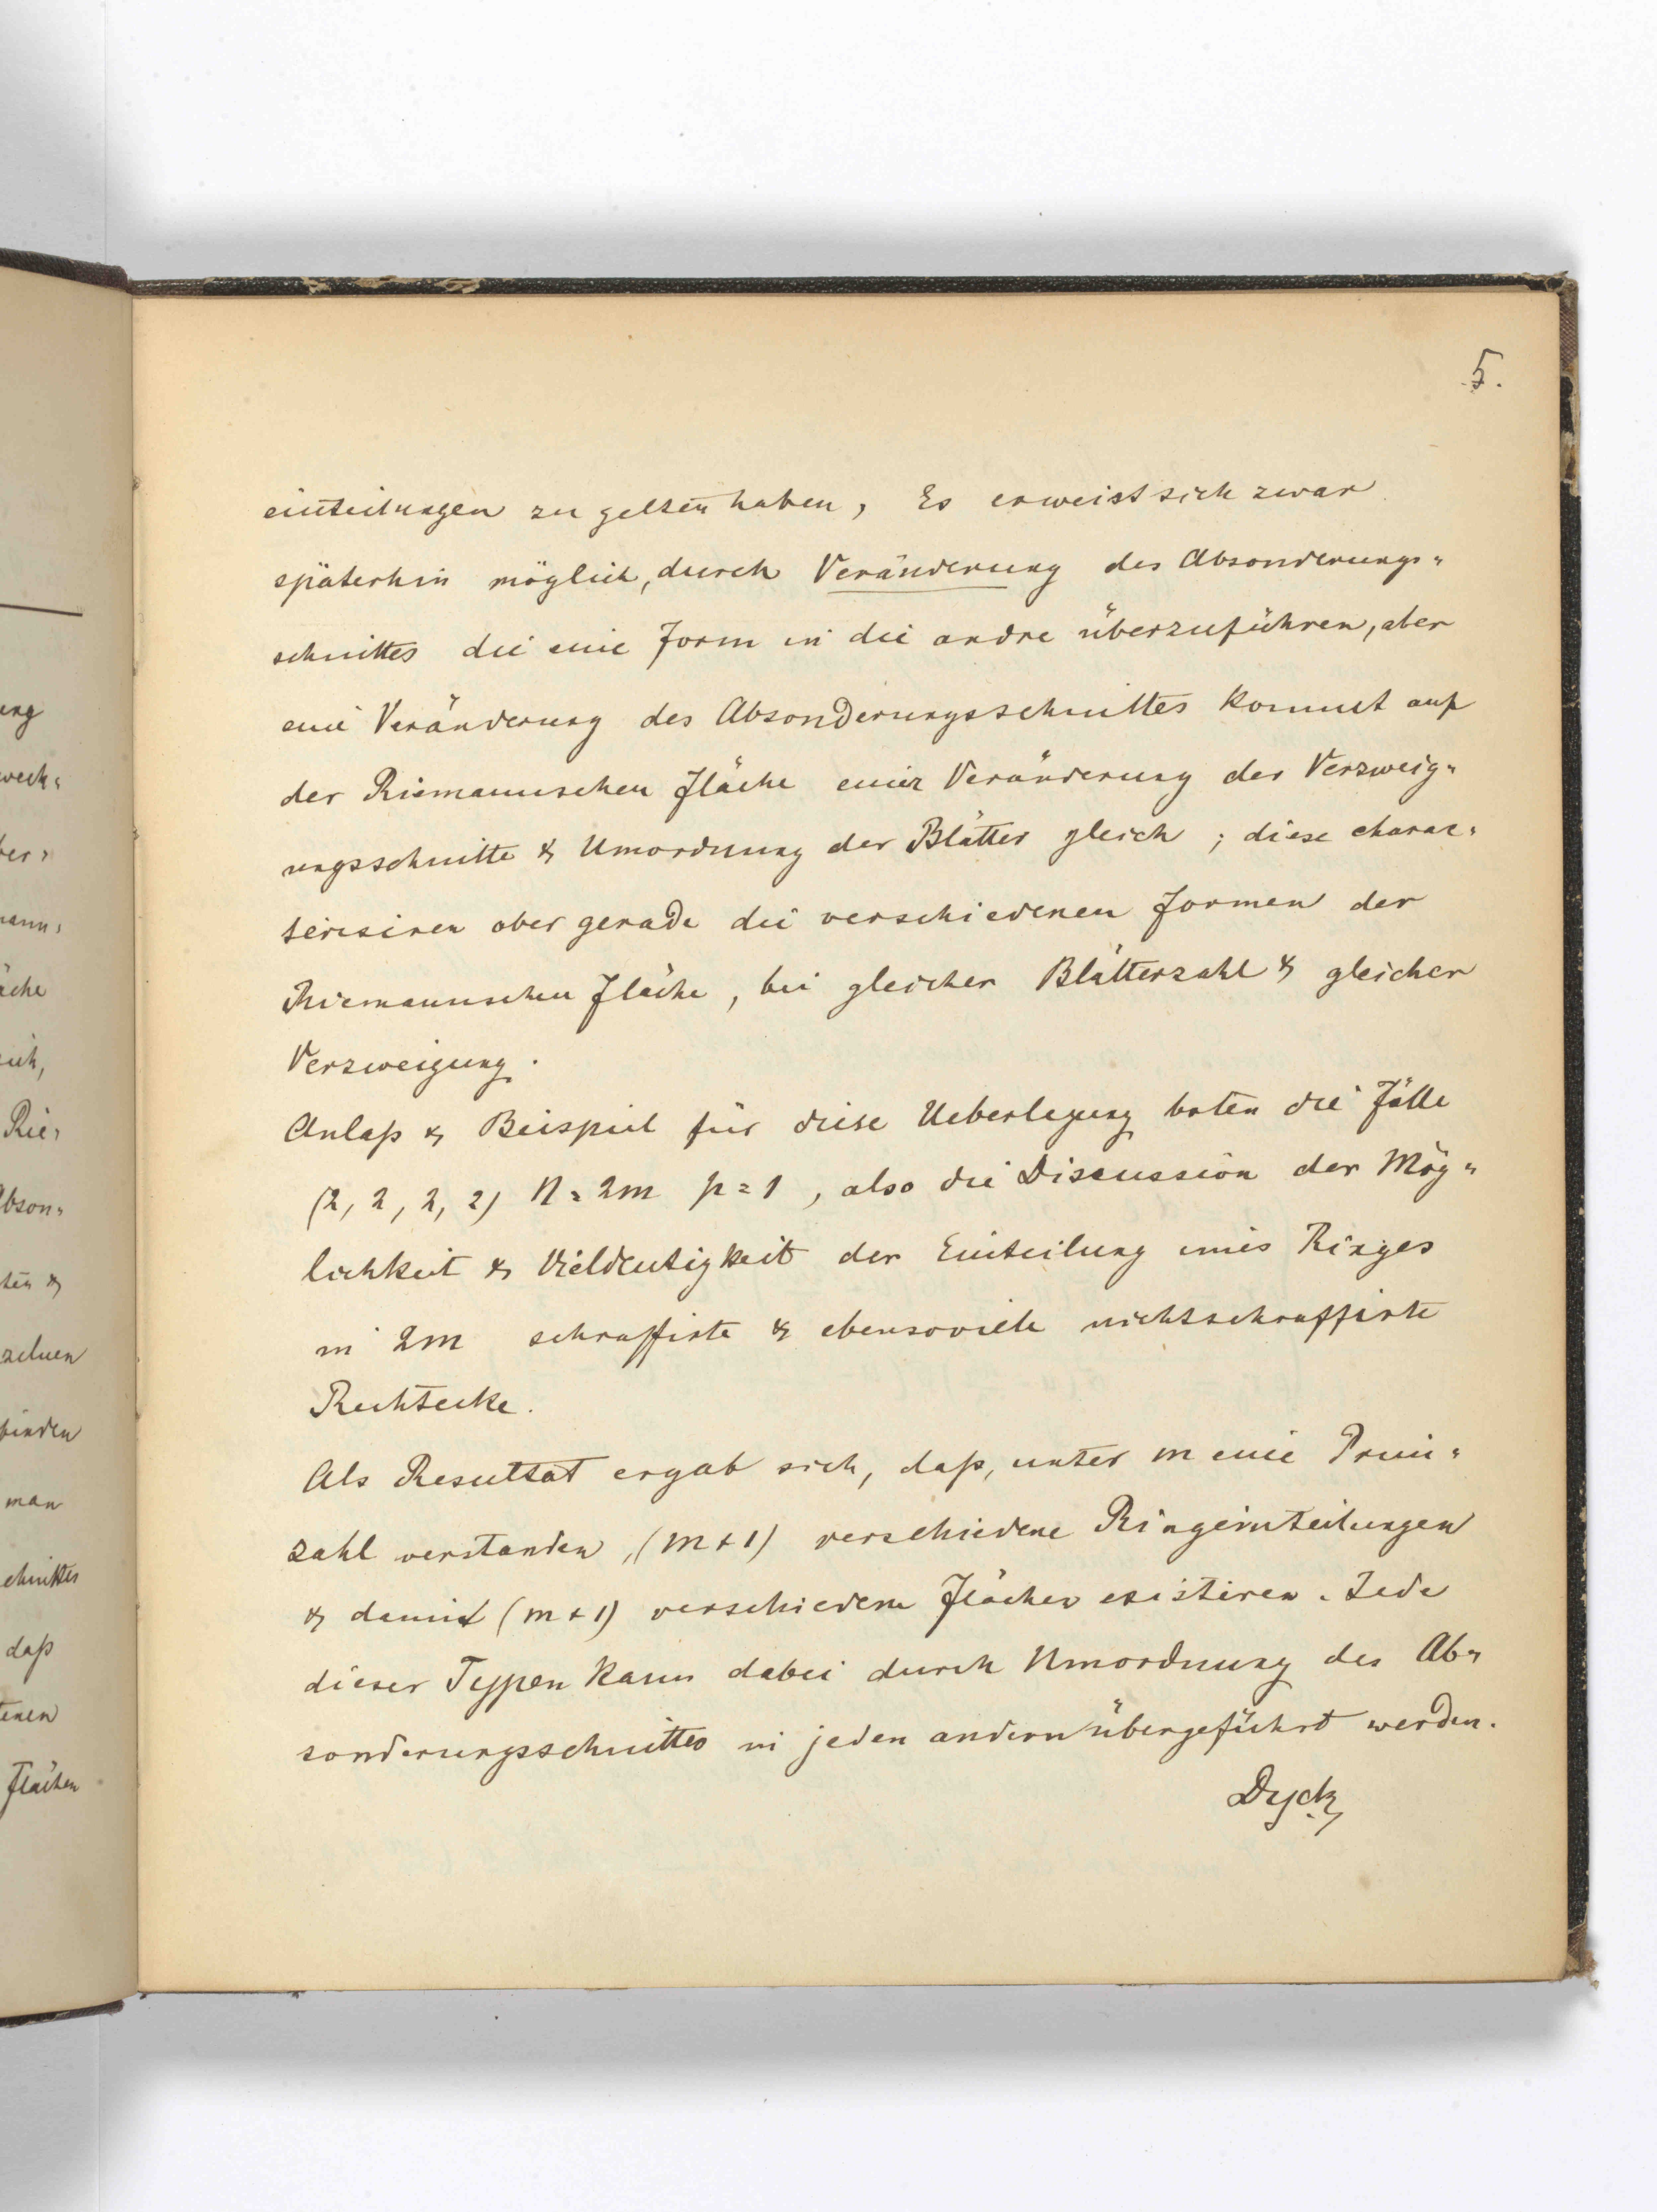 5.
einteilungen zu gelten haben, Es erweist sich zwar
späterhin möglich, durch Veränderung des Absonderungs-
schnittes die eine Form in die andre überzuführen, aber
eine Veränderung des Absonderungsschnittes kommt auf
der Riemannschen Fläche einer Veränderung der Verzweig-
ungsschnitte & Umordnung der Blätter gleich; diese charac-
terisiren aber gerade die verschiedenen Formen der
Riemannschen Fläche, bei gleicher Blätterzahl & gleicher
Verzweigung.
Anlaß & Beispiel für diese Ueberlegung boten die Fälle
(2, 2, 2, 2) N = 2m p = 1, also die Discussion der Mög-
lichkeit & Vieldeutigkeit der Einteilung eines Ringes
in 2m schraffirte & ebensoviele nichtschraffirte
Rechtecke.
Als Resultat ergab sich, daß, unter m eine Prim-
zahl verstanden, (m+1) verschiedene Ringeinteilungen
& damit (m+1) verschiedene Flächen existiren. Jede
dieser Typen kann dabei durch Umordnung des Ab-
sonderungsschnittes in jeden andern übergeführt werden.
Dyck
ung
wech-
ber-
mann-
äche
sich,
Rie-
Abson-
ten &
zelnen
finden
man
chnittes
daß
tenen
Flächen